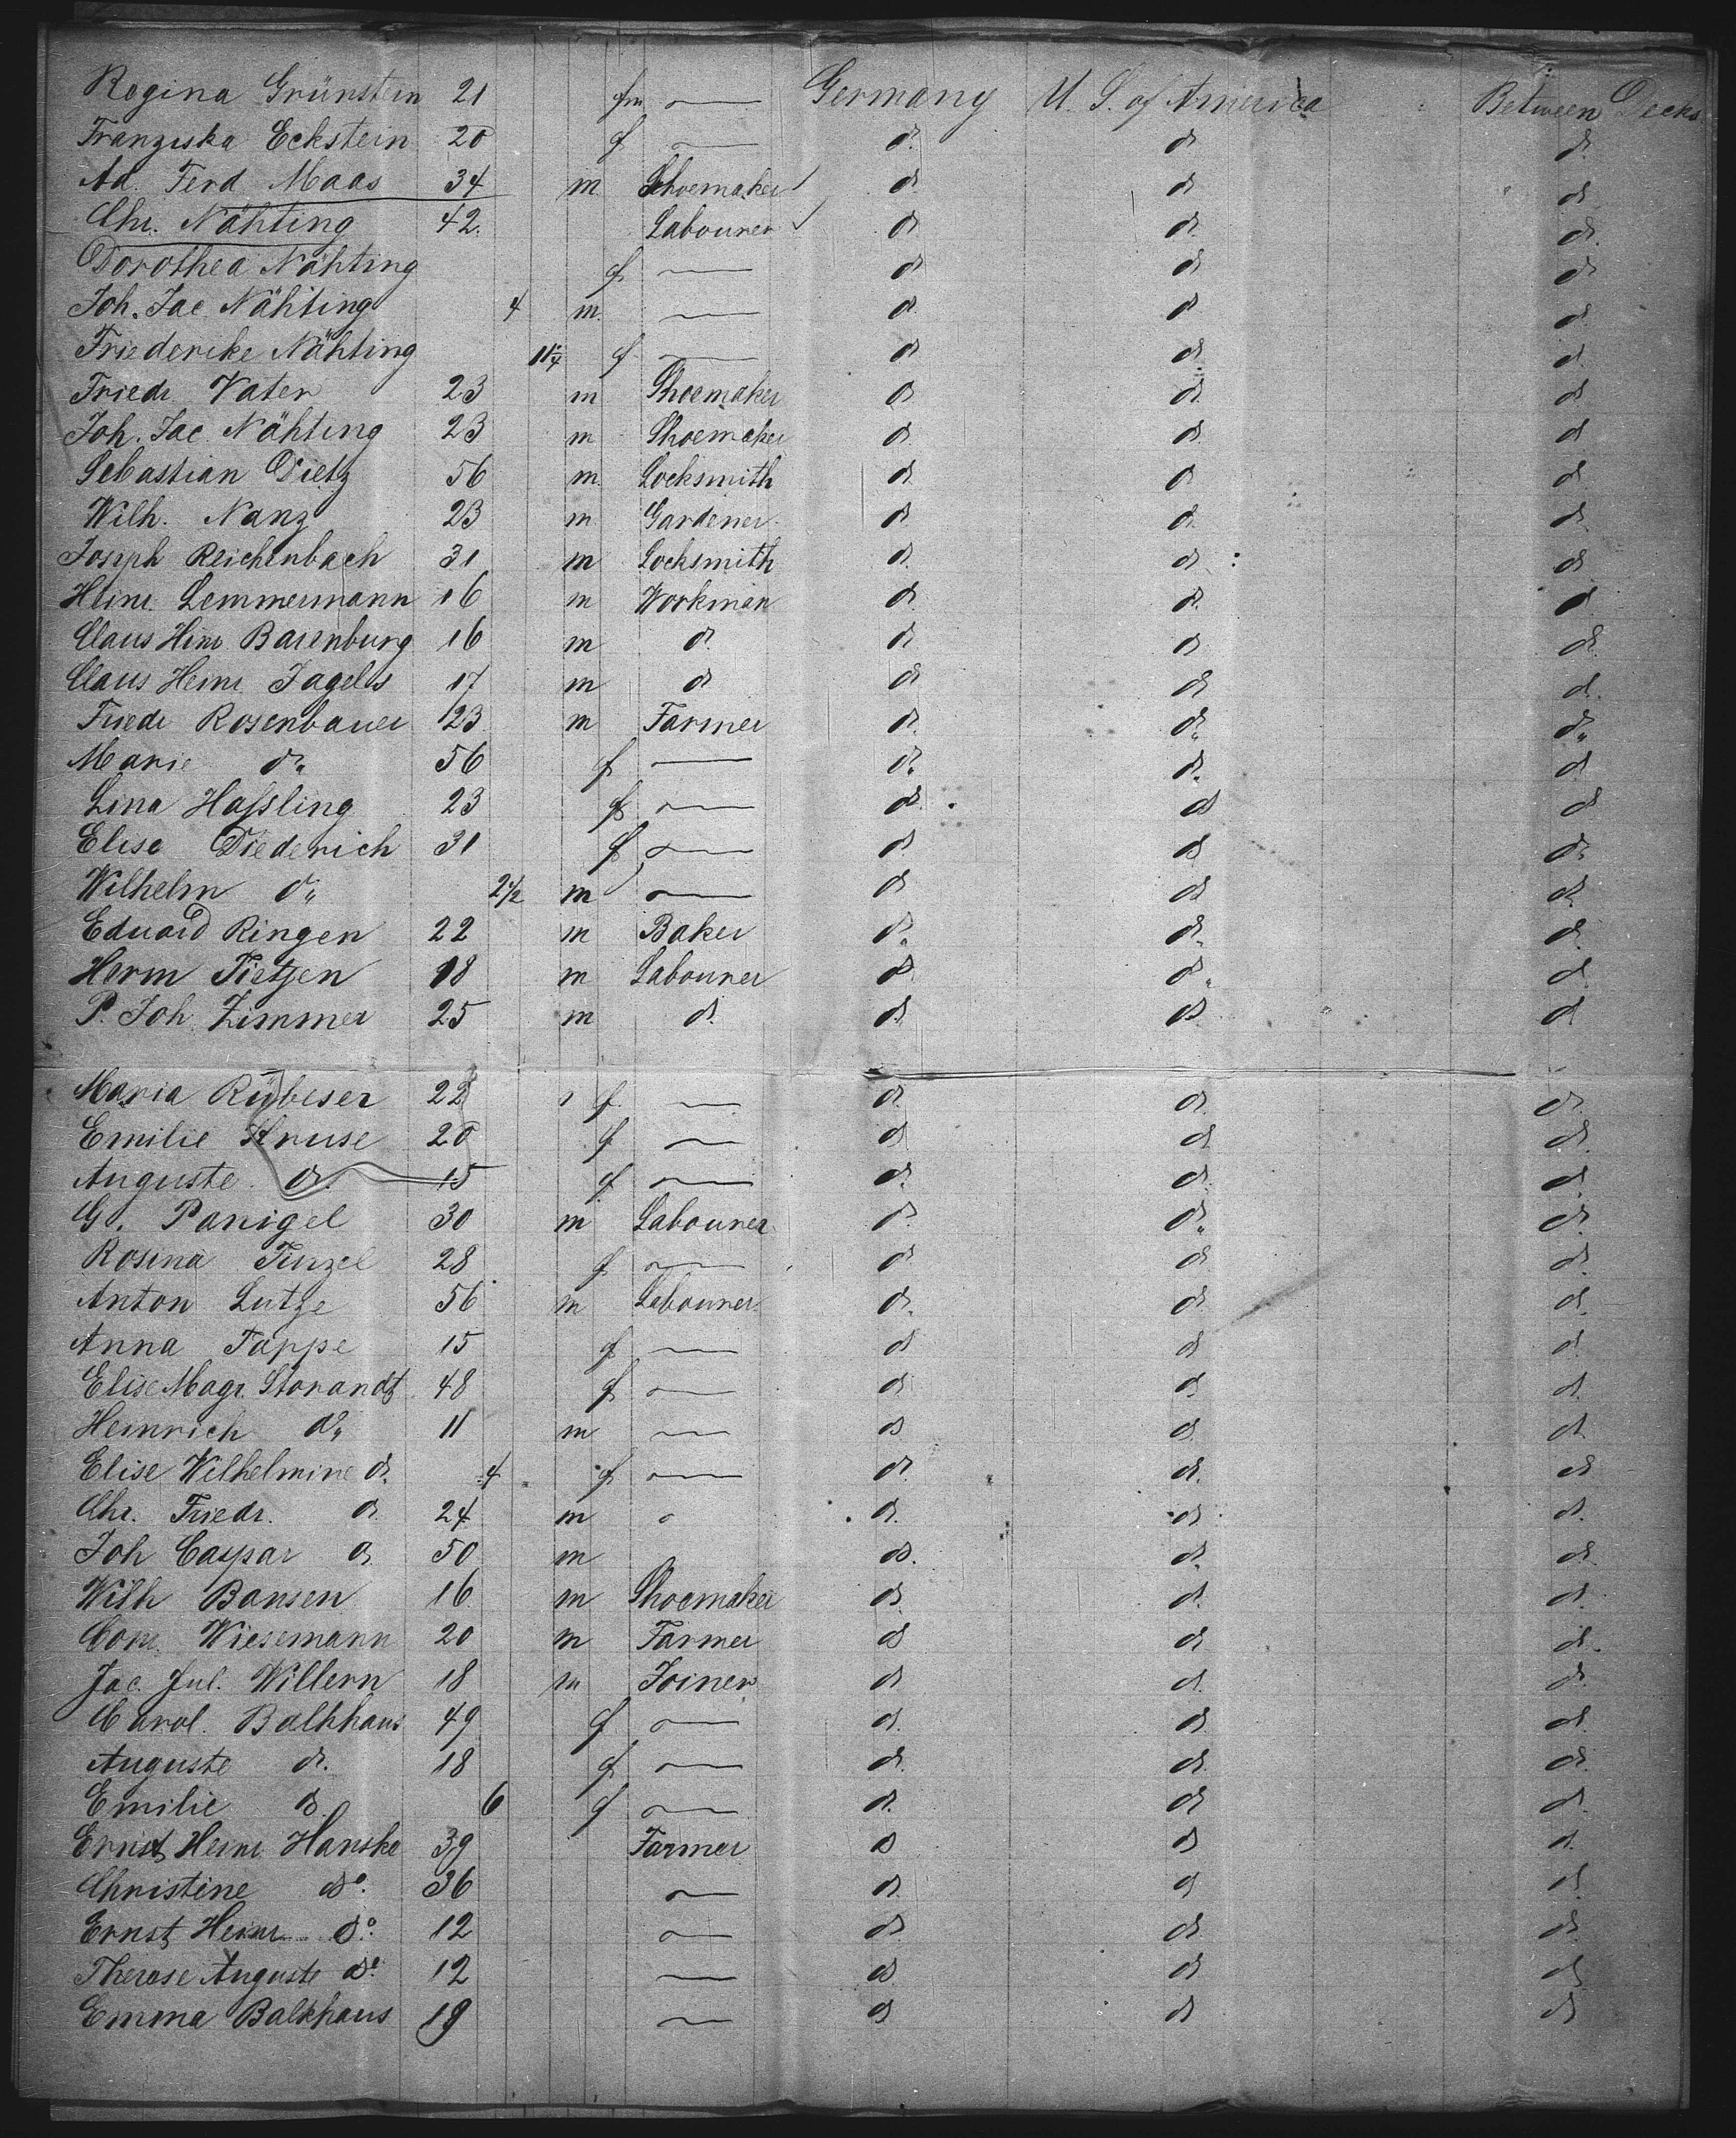 Regina Grünstein 21 fm — Germany U. S. of America Between Decks
Franziska Eckstein 20 f — do do do
Ad. Ferd Maas 34 m Shoemaker ✓ do do do
Chr. Nähting 42. Labourer ✓ do do do
Dorothea Nähting f — do do do
Joh. Jac Nähting 4 m. — do do do
Friederike Nähting f — do do do
Friedr Vater 23 m Shoemaker do do do
Joh. Jac. Nähting 23 m Shoemaker do do do
Sebastian Dietz 56 m. Locksmith do do do
Wilh. Nanz 23 m Gardener do do do
Joseph Reichenbach 31 m Locksmith do do do
Heinr. Lemmermann 16 m Workman do do do
Claus Hinr Barenburg 16 m do do do do
Claus Heinr Jagels 17 m do do do do
Friedr Rosenbauer 23 m Farmer do do do
Marie do 56 f — do do do
Lina Hassling 23 f — do do do
Elise Diederich 31 f — do do do
Wilhelm do 2½ m — do do do
Eduard Ringen 22 m Baker do do do
Herm Tietjen 18 m Labourer do do do
P. Joh. Zimmer 25 m do do do do
Maria 22 f — do do do
Emilie Kruse 20 f — do do do
Auguste do 15 f — do do do
G. Panigel 30 m Labourer do do do
Rosina Tinzel 28 f — do do do
Anton Lutze 56 m Labourer do do do
Anna Tappe 15 f — do do do
Elise Magr. Storandt 48 f — do do do
Heinrich do 11 m — do do do
Elise Wilhelmine do 4 f — do do do
Chr. Friedr. do 24 m do do do
Joh Caspar do 50 m do do do
Wilh Bansen 16 m Shoemaker do do do
Wiesemann 20 m Farmer do do do
Jac. Jul. Willern 18 m Joiner do do do
Carol. Balkhaus 49 f — do do do
Auguste do 18 f — do do do
Emilie do 6 f — do do do
Ernst Heinr Hanske 39 Farmer do do do
Christine do 36 — do do do
Ernst Heinr do 12 — do do do
Therese Auguste do 12 — do do do
Emma Balkhaus 19 — do do do